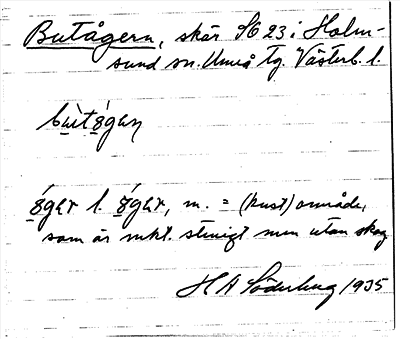 Butågern, skär SO 23 i Holm-
sund sn. Umeå tg. Västerb. l.
bùtågen
ågər l. ågər, m. = (kust)område,
som är mkt. stenigt men utan skog
H A Söderberg 1935